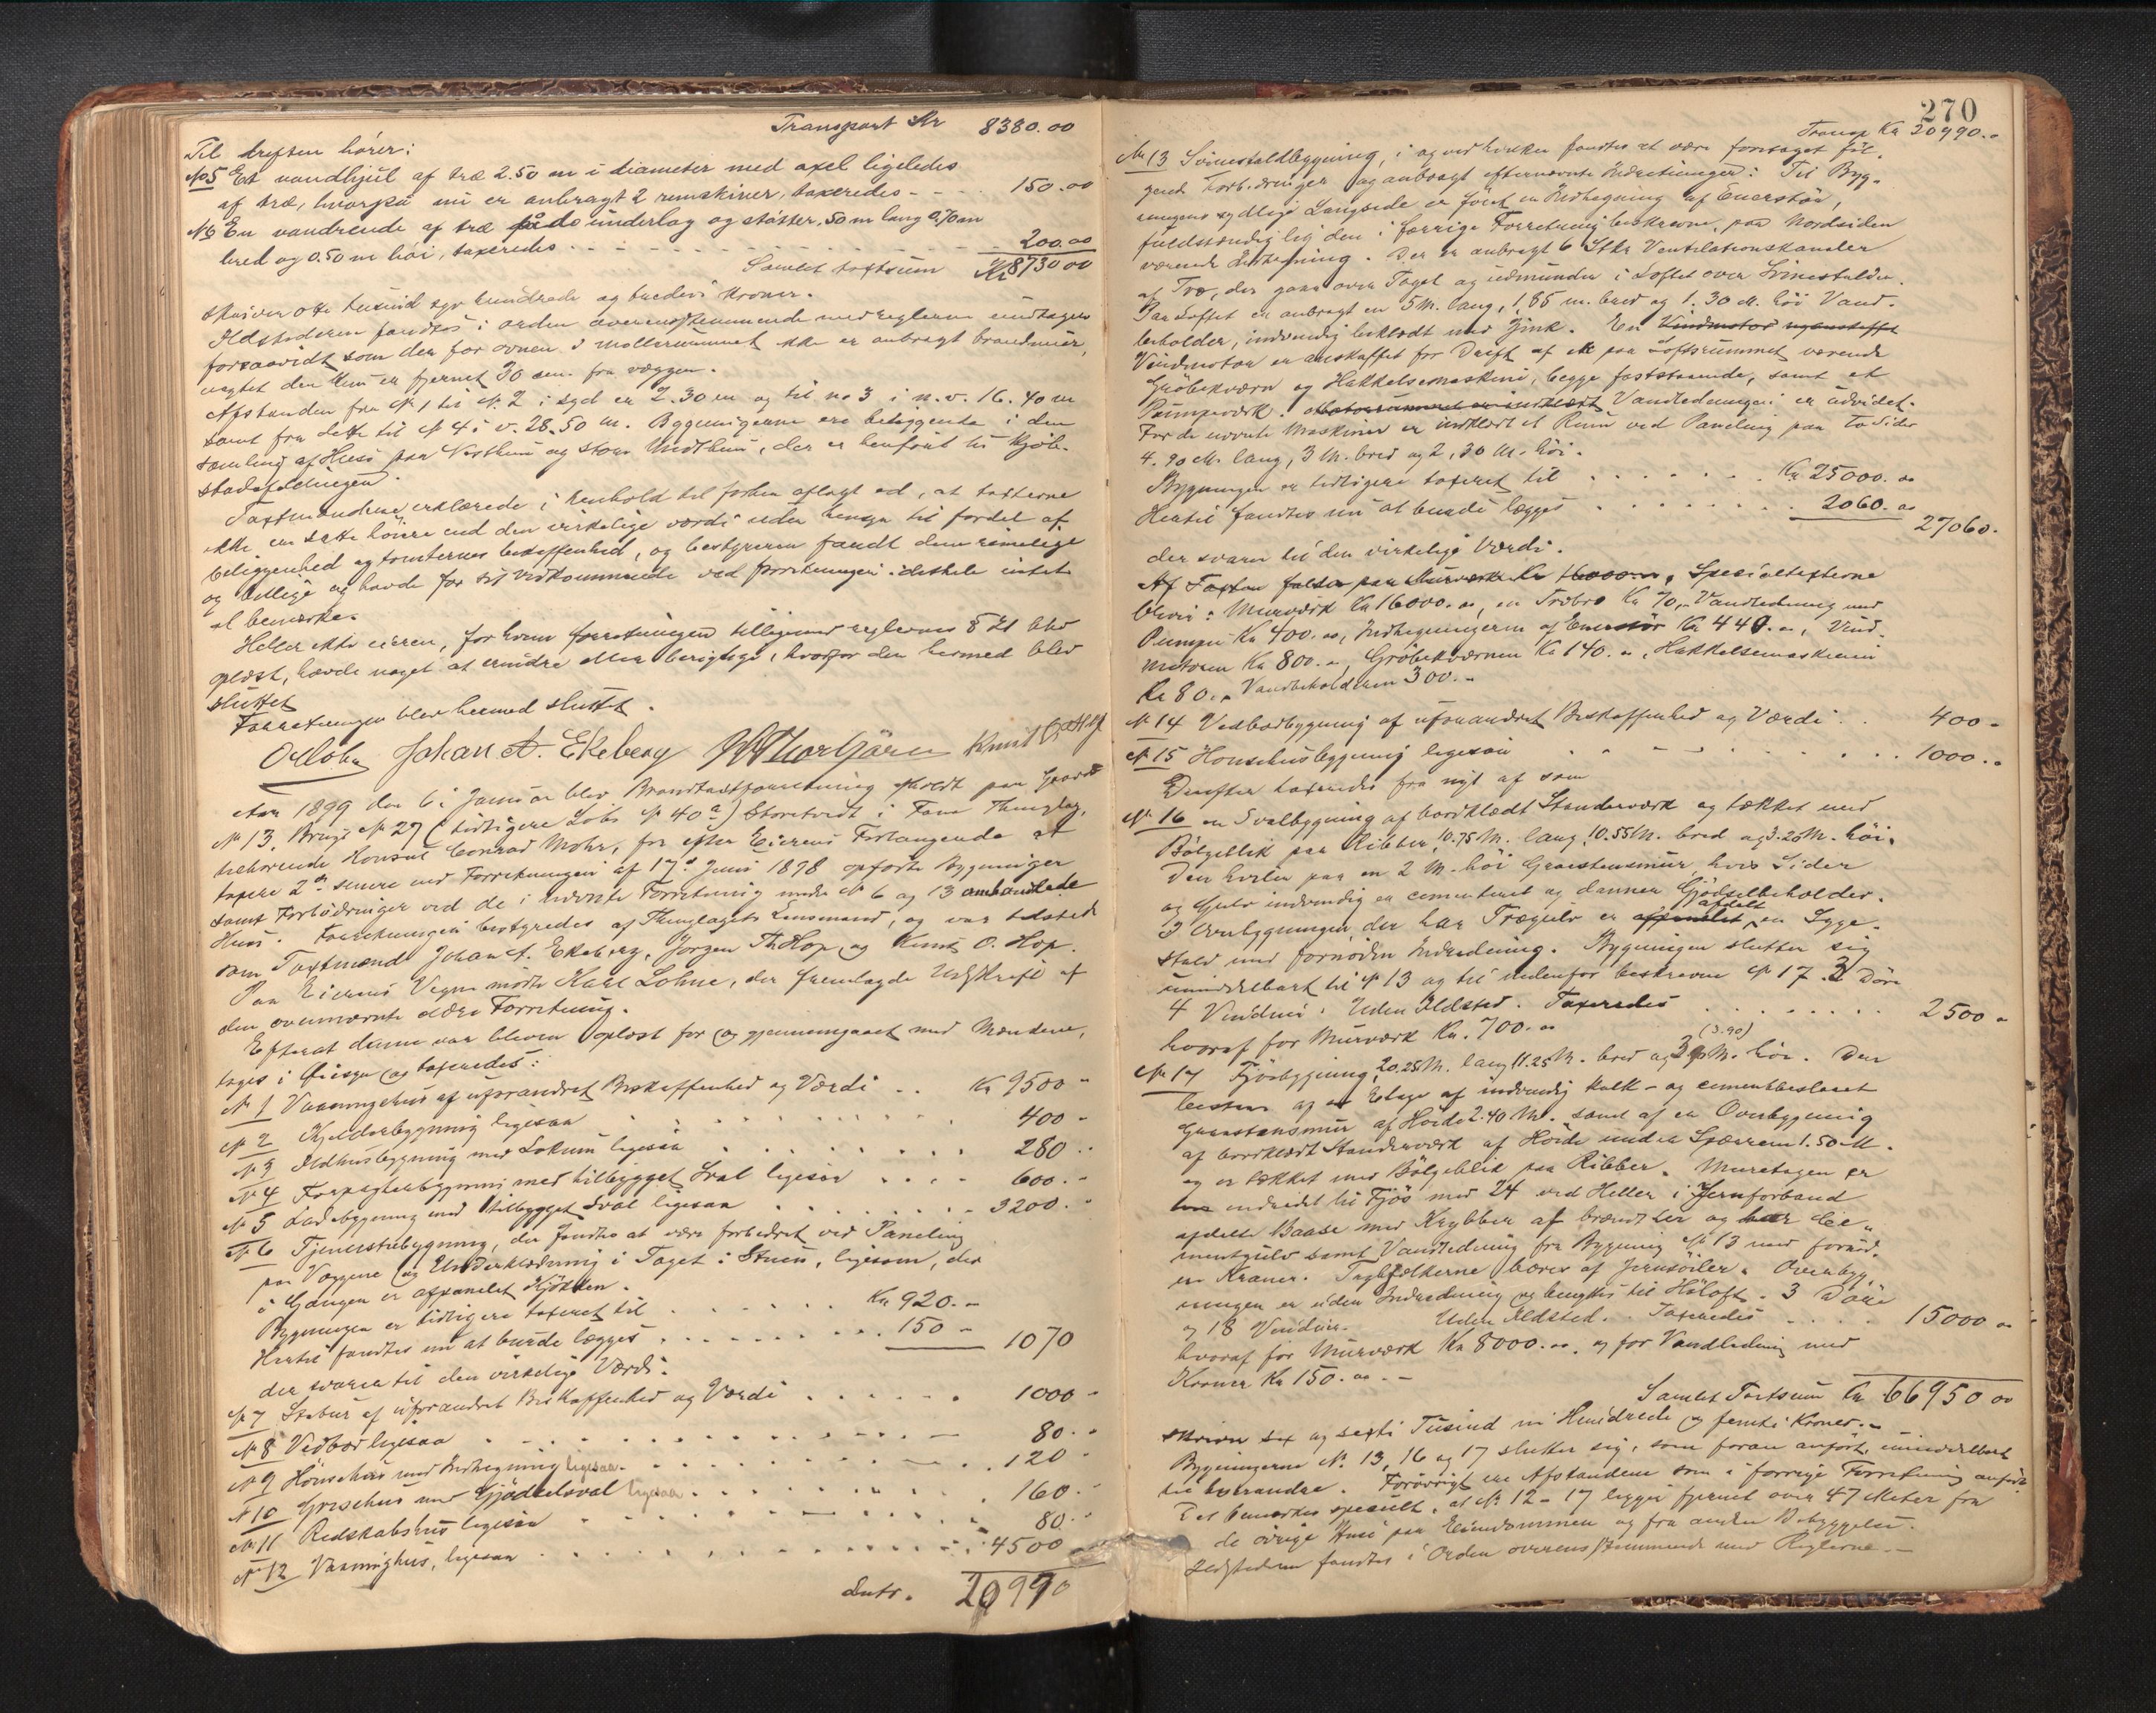 Transport Kr 8380.00
Til driften hører:
No 5 Et vandhjul af træ 2.50 m i diameter med axel ligeledes
af træ, hvorpaa nu er anbragt 2 remskiver, taxeredes 150.00
No 6 En vandrende af træ både underlag og støtter, 50 m lang 0.70 m
bred og 0.50 m høi, taxeredes 200.00
Samlet taxtsum Kr 8730.00
skriver otte tusind syv hundrede og tredivi kroner.
Ildstederne fandtes i orden overensstemmende med reglerne undtagen
forsaavidt som der for ovnen i møllerummet ikke er anbragt brandmur,
uagtet den kun er fjernet 30 cm. fra væggen.
Afstanden fra No 1 til No 2 i syd er 2.30 m og til no 3 i n.v. 16.40 m
samt fra dette til No 4 i v. 28.50 m. Bygningerne ere beliggende i den
samling af Huse paa Vesthun og store Midthun, der er henført til Kjøb-
stadsfdelingen.
Taxtmændene erklærede i henhold til forhen aflagt ed, at taxterne
ikke ere satte høiere end den virkelige værdi uden hensyn til fordel af
beliggenhed og tomternes beskaffenhed, og bestyreren fandt dem rimelige
og billige og havde for sit vedkommende ved forretningen idethele intet
at bemærke.
Heller ikke eieren, for hvem forretningen tilligemed reglernes § 21 blev
oplæst, havde noget at erindre eller berigtige, hvorfor den hermed blev
sluttet
Forretningen blev hermed sluttet.
Johan A. Ekeberg Knut O Hop
Aar 1899 den 6 Januar blev Brandtaxtforretning afholdt paa Gaards
No 13, Brugs No 27 (tidligere Løbs No 40 a) Storetvedt i Fane Thinglag,
tilhørende Konsul Conrad Mohr, for efter Eierens Forlangende at
taxere 2de senere end Forretningen af 17de Juni 1898 opførte Bygninger
samt Forbedringer ved de i nævnte Forretning under No 6 og 13 ombandlede
Huse. Forretningen bestyredes af Thinglagets Lensmand, og var tilstede
som Taxtmænd Johan A. Ekeberg, Jørgen Th. Hop og Knut O. Hop.
Paa Eierens Vegne mødte Karl Lohne, der fremlagde Udskrift af
den ovennævnte ældre Forretning.
Efterat denne var bleven oplæst for og gjennemgaaet med Mændene,
toges i Øiesyn og taxeredes:
No 1 Vaaningshus af uforandret Beskaffenhed og Værdi Kr 9500 -
No 2 Kjelderbygning ligesaa 400 -
No 3 Ildhusbygning med Lokum ligesaa 280 -
No 4 Forpagterbygning med tilbygget Sval ligesaa 600 -
No 5 Ladebygning med tilbygget Sval ligesaa 3200 -
No 6 Tjenerstubygning, der fandtes at være forbedret ved Paneling
paa Væggene og Underklædning i Taget i Stuen, ligesom, der
i Gangen er afpanelet Kjøkken.
Bygningen er tidligere taxeret til Kr 920.-
Hertil fandtes nu at burde lægges 150 - 1070
der svarer til den virkelige Værdi.
No 7 Stabur af uforandret Beskaffenhed og Værdi 1000 -
No 8 Vedbod ligesaa 80 -
No 9 Hønsehus med Indhegning ligesaa 120 -
No 10 Grisehus med Gjødselsval ligesaa 160 -
No 11 Redskabshus ligesaa 80 -
No 12 Vaaninghus, ligesaa 4500 -
Latr. 20990
270
Transp Kr 20990.-
No 13 Svinestaldbygning, i og ved hvilken fandtes at være foretaget føl-
gende Forbedringer og anbragt efternævnte Indretninger: Til Byg-
ningens sydlige Langside er føiet en Indhegning af Enerstør,
fuldstændig lig den i forrige Forretning beskrevne, paa Nordsiden
værende Indhegning. Der er anbragt 6 Stkr Ventilationskanaler
af Træ, der gaar over Taget og udmunder i Loftet over Svinestalden.
Paa Loftet er anbragt en 5 M. lang, 1,85 m. bred og 1.30 M. høi Vand-
beholder, indvendig beklædt med Zink. En Vindmotor nyanskaffet
Vindmotor er anskaffet for Drift af en paa Loftsrummet værende
Grøbekværn og Hakkelsemaskine, begge faststaaende, samt et
Pumpeværk. Motorrummet er indklædt Vandledningen er udvidet.
For de nævnte Maskiner er indklædt et Rum ved Paneling paa to Sider
4.90 M. lang, 3 M. bred og 2,30 M. høi.
Bygningen er tidligere taxeret til Kr 25000.00
Hertil fandtes nu at burde lægges 2060.00 27060.
der svarer til den virkelige Værdi.
Af Taxten falder paa Murværk Kr 16000.00, Specialtaxterne
blev: Murværk Kr 16000.00, en Træbro Kr 70,- Vandledning med
Pumpe Kr 400.00, Indhegningerne af Enerstør Kr 440.-, Vind-
motoren Kr 800.-, Grøbekværnen Kr 140.-, Hakkelsemaskinen
Kr 80.-, Vandbeholderen 300.-
No 14 Vedbodbygning af uforandret Beskaffenhed og Værdi 400 -
No 15 Hønsehusbygning ligesaa 1000.-
Derefter taxeredes fra nyt af som
No 16 en Svalbygning af bordklædt Standerværk og tækket med
Bølgeblik paa Ribber, 10.75 M. lang, 10.55 M. bred og 3.25 M. høi.
Den hviler paa en 2 M. høi Graastensmur, hvis Sider
og Gulv indvendig er cementeret og danner Gjødselbeholder.
I Overbygningen, der har Trægulv er afpanelet afdelt en Syge-
stald med fornøden Indredning. Bygningen slutter sig
umiddelbart til No 13 og til nedenfor beskrevne No 17. 3 Døre
4 Vinduer. Uden Ildsted. Taxeredes 2500 -
hvoraf for Murværk Kr. 700.00
No 17 Fjøsbygning, 20.25 M. lang 11.25 M. bred og 3.90 (3.90) M. høi. Den
bestaar af en Etage af indvendig kalk- og cementbeslaaet
Graastensmur af Høide 2.40 M. samt af en Overbygning
af bordklædt Standerværk af Høide under Sperrene 1.50 M.
og er tækket med Bølgeblik paa Ribber. Muretagen er
indredet til Fjøs med 24 ved Heller i Jernforband
afdelte Baase med Krybber af brændt Ler og har Ce-
mentgulv samt Vandledning fra Bygning No 13 med fornød-
ne Kraner. Tagbjælkerne bæres af Jernsøiler. Overbyg-
ningen er uden Indredning og benyttes til Høloft. 3 Døre
og 18 Vinduer. Uden Ildsted. Taxeredes 15000 00
hvoraf for Murværk Kr 8000.00, og for Vandledning med
Kraner Kr 150.00.-
Samlet Taxtsum Kr 66950 00
skriver sex og sexti Tusind ni Hundrede og femti Kroner.-
Bygningerne No 13, 16 og 17 slutter sig, som foran anført, umiddelbart
til hverandre. Forøvrigt ere Afstandene som i forrige Forretning anført
Det bemærkes specielt, at No 12 - 17 ligger fjernet over 47 Meter fra
de øvrige Huse paa Eiendommen og fra anden Bebyggelse.
Ildstederne fandtes i Orden overensstemmende med Reglerne.-